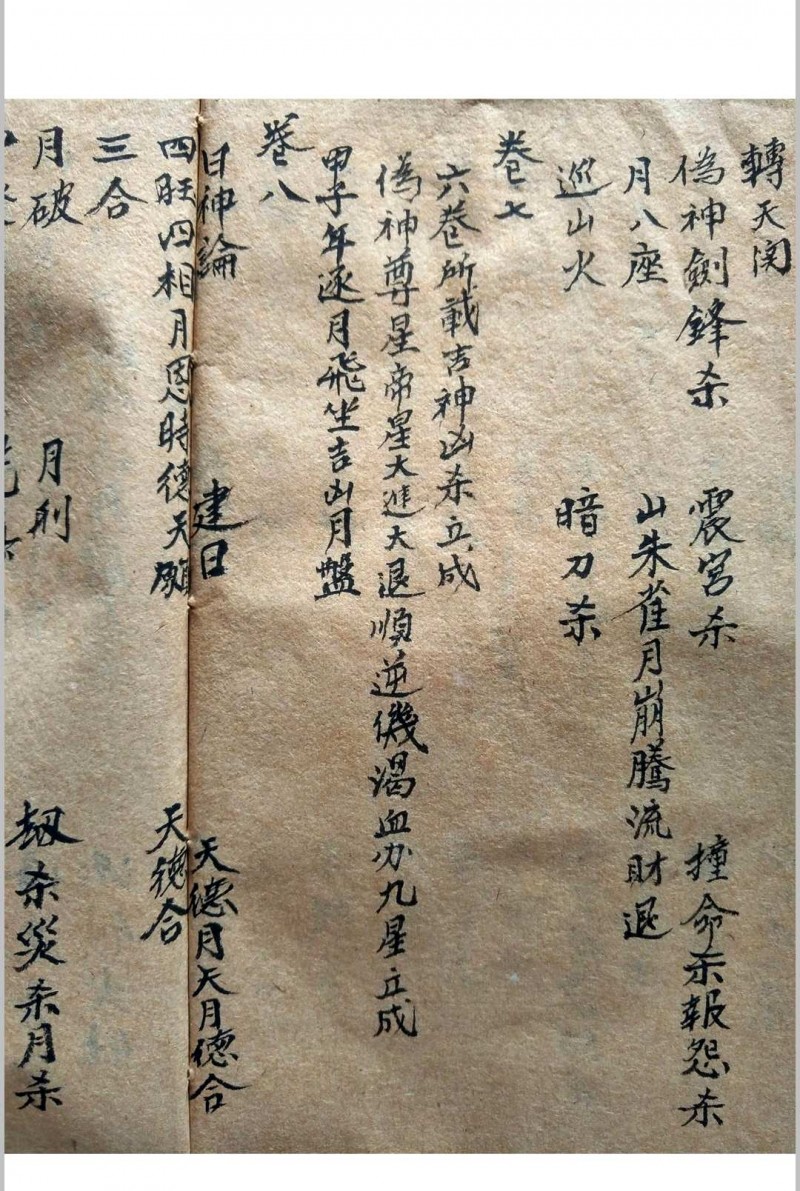 轉天関
偽神劍鋒杀 震宫杀 撞命杀報怨杀
月八座 山朱雀月崩騰流財退
巡山火 暗刀杀
卷七
六卷所載吉神凶杀立成
偽神尊星帝星大進大退順逆機渴血办九星立成
甲子年逐月飛坐吉凶月盤
卷八
日神論 建日 天德月天月德合
四旺四相月恩時德天願 天德合
三合
月破 月刑 劫杀災杀月杀